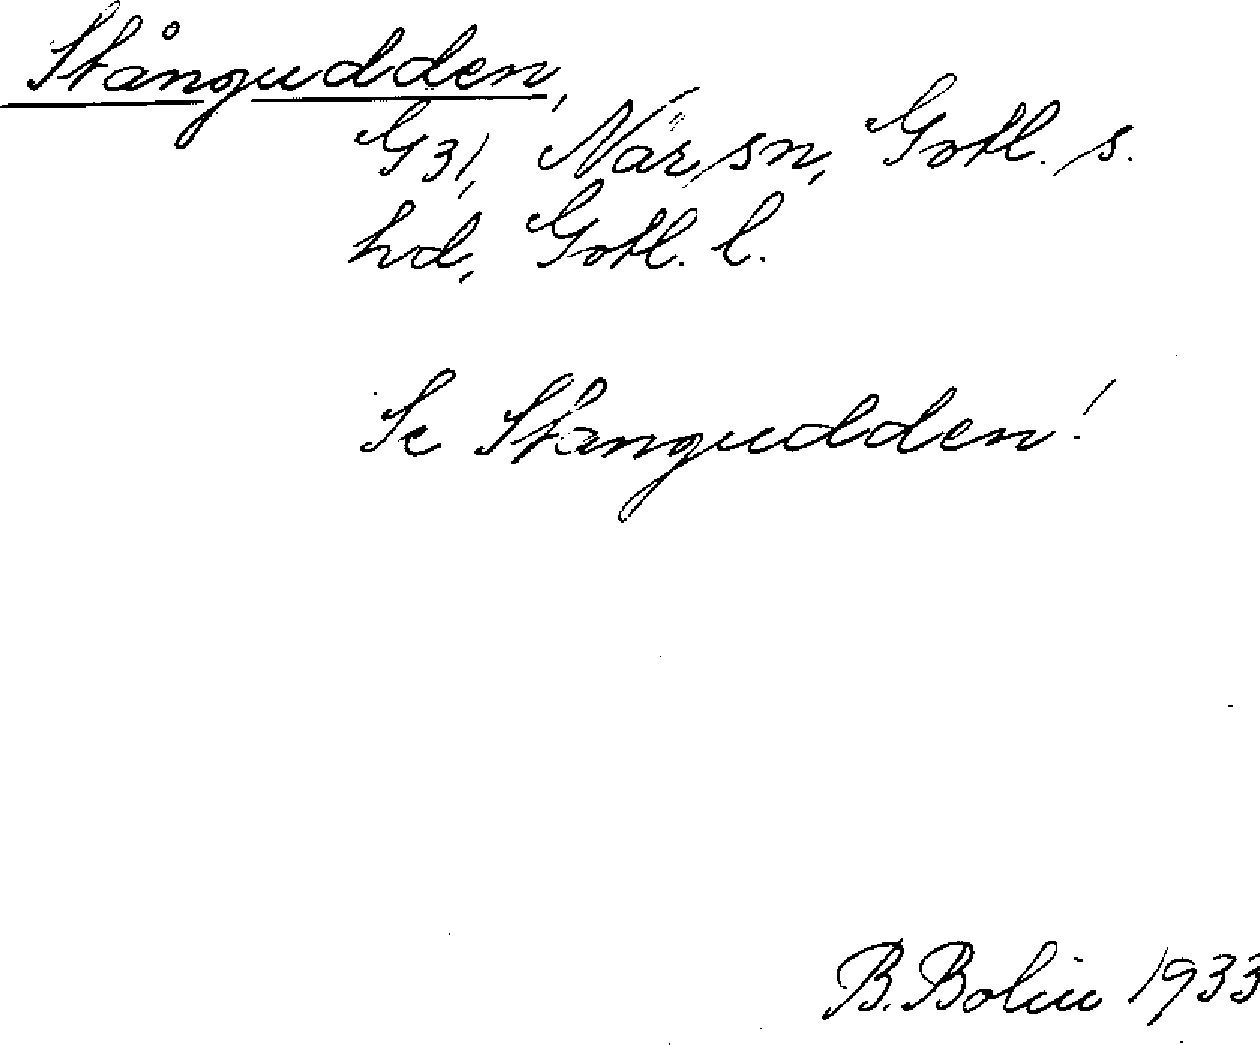 Stångudden,
G31, När sn, Gotl. s.
hd, Gotl. l.
Se Stangudden!
B. Bolin 1933